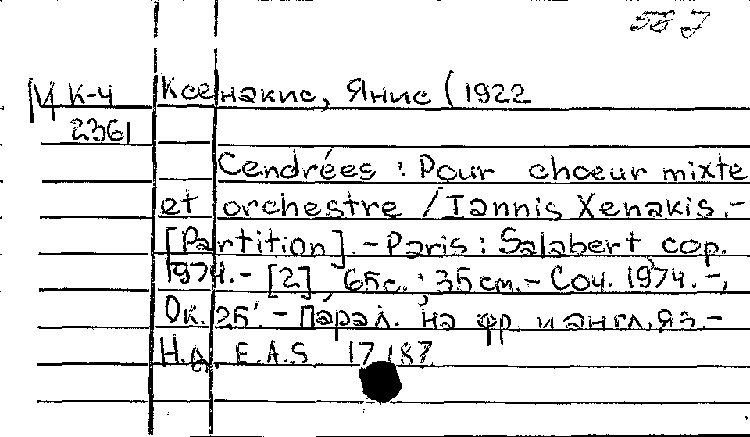 М К-4 Ксенакис, Янис (1922
2361
Cendrées : Pour choeur mixte
et orchestre / Iannis Xenakis.-
[Partition].- Paris : Salabert, cop.
1974.- [2], 65с. ; 35 см.- Соч. 1974.-,
Ок. 25'.- Парал. на фр. и англ. яз.-
Н.д. E.A.S. 17187